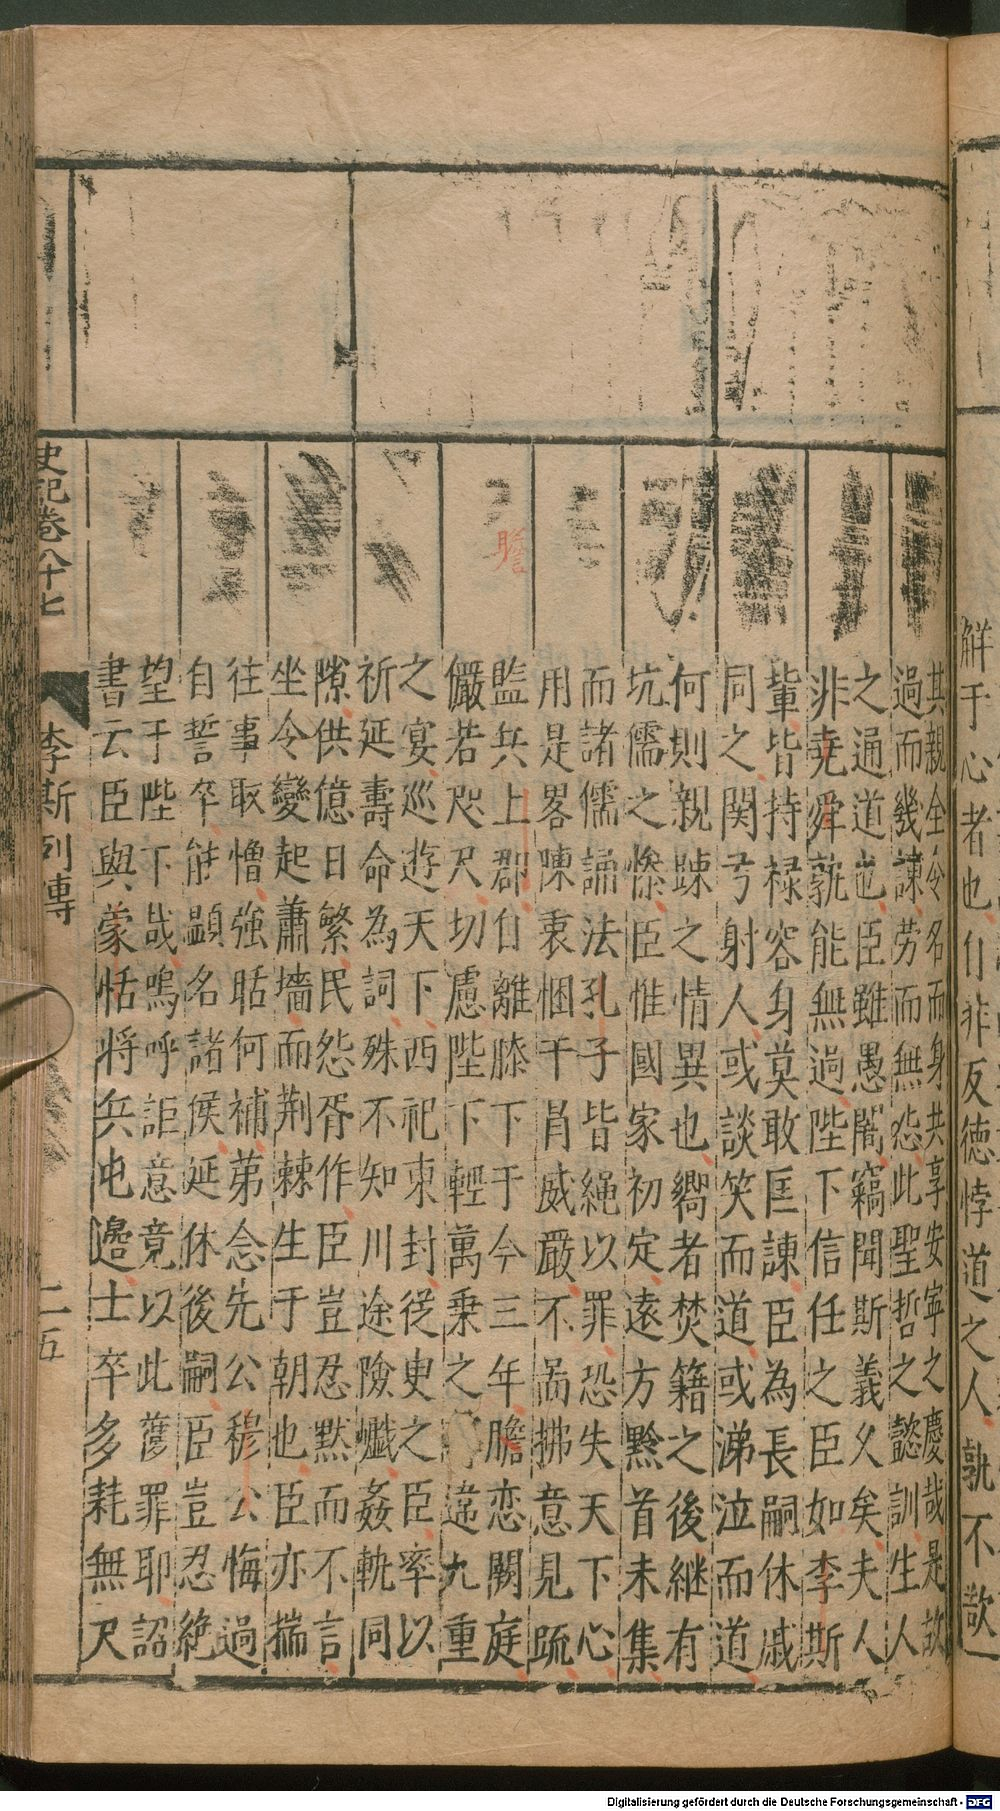 解于心者也自非反德悖道之人孰不歆
其親全令名而身共享安寧之慶哉是故
過而幾諫劳而無怨此聖哲之懿訓生人
之通道也臣雖愚闇竊聞斯義久矣夫人
非尭舜孰能無過陛下信任之臣如李斯
輩皆持禄容身莫敢匡諫臣為長嗣休戚
同之関弓射人或談笑而道或涕泣而道
何則親踈之情異也嚮者焚籍之後継有
坑儒之惨臣惟國家初定遠方黔首未集
而諸儒誦法孔子皆繩以罪恐失天下心
用是畧陳衷悃干冐威嚴不啚拂意見疏
監兵上郡自離膝下于今三年膽恋闕庭
儼若咫尺切慮陛下輕萬乗之 違九重
之宴巡遊天下西祀東封従臾之臣率以
祈延壽命為詞殊不知川途險巇姦軌同
隙供億日繁民怨胥作臣豈忍默而不言
坐令變起蕭墻而荆棘生于朝也臣亦揣
往事取憎強聒何補苐念先公穆公悔過
自誓卒能顕名諸侯延休後嗣臣豈忍絶
望于陛下哉嗚呼詎意竟以此蒦罪耶詔
書云臣與蒙恬将兵屯邉士卒多耗無尺
膽
史記卷八十七
李斯列傳
二五
Digitalisierung gefördert durch die Deutsche Forschungsgemeinschaft - DFG